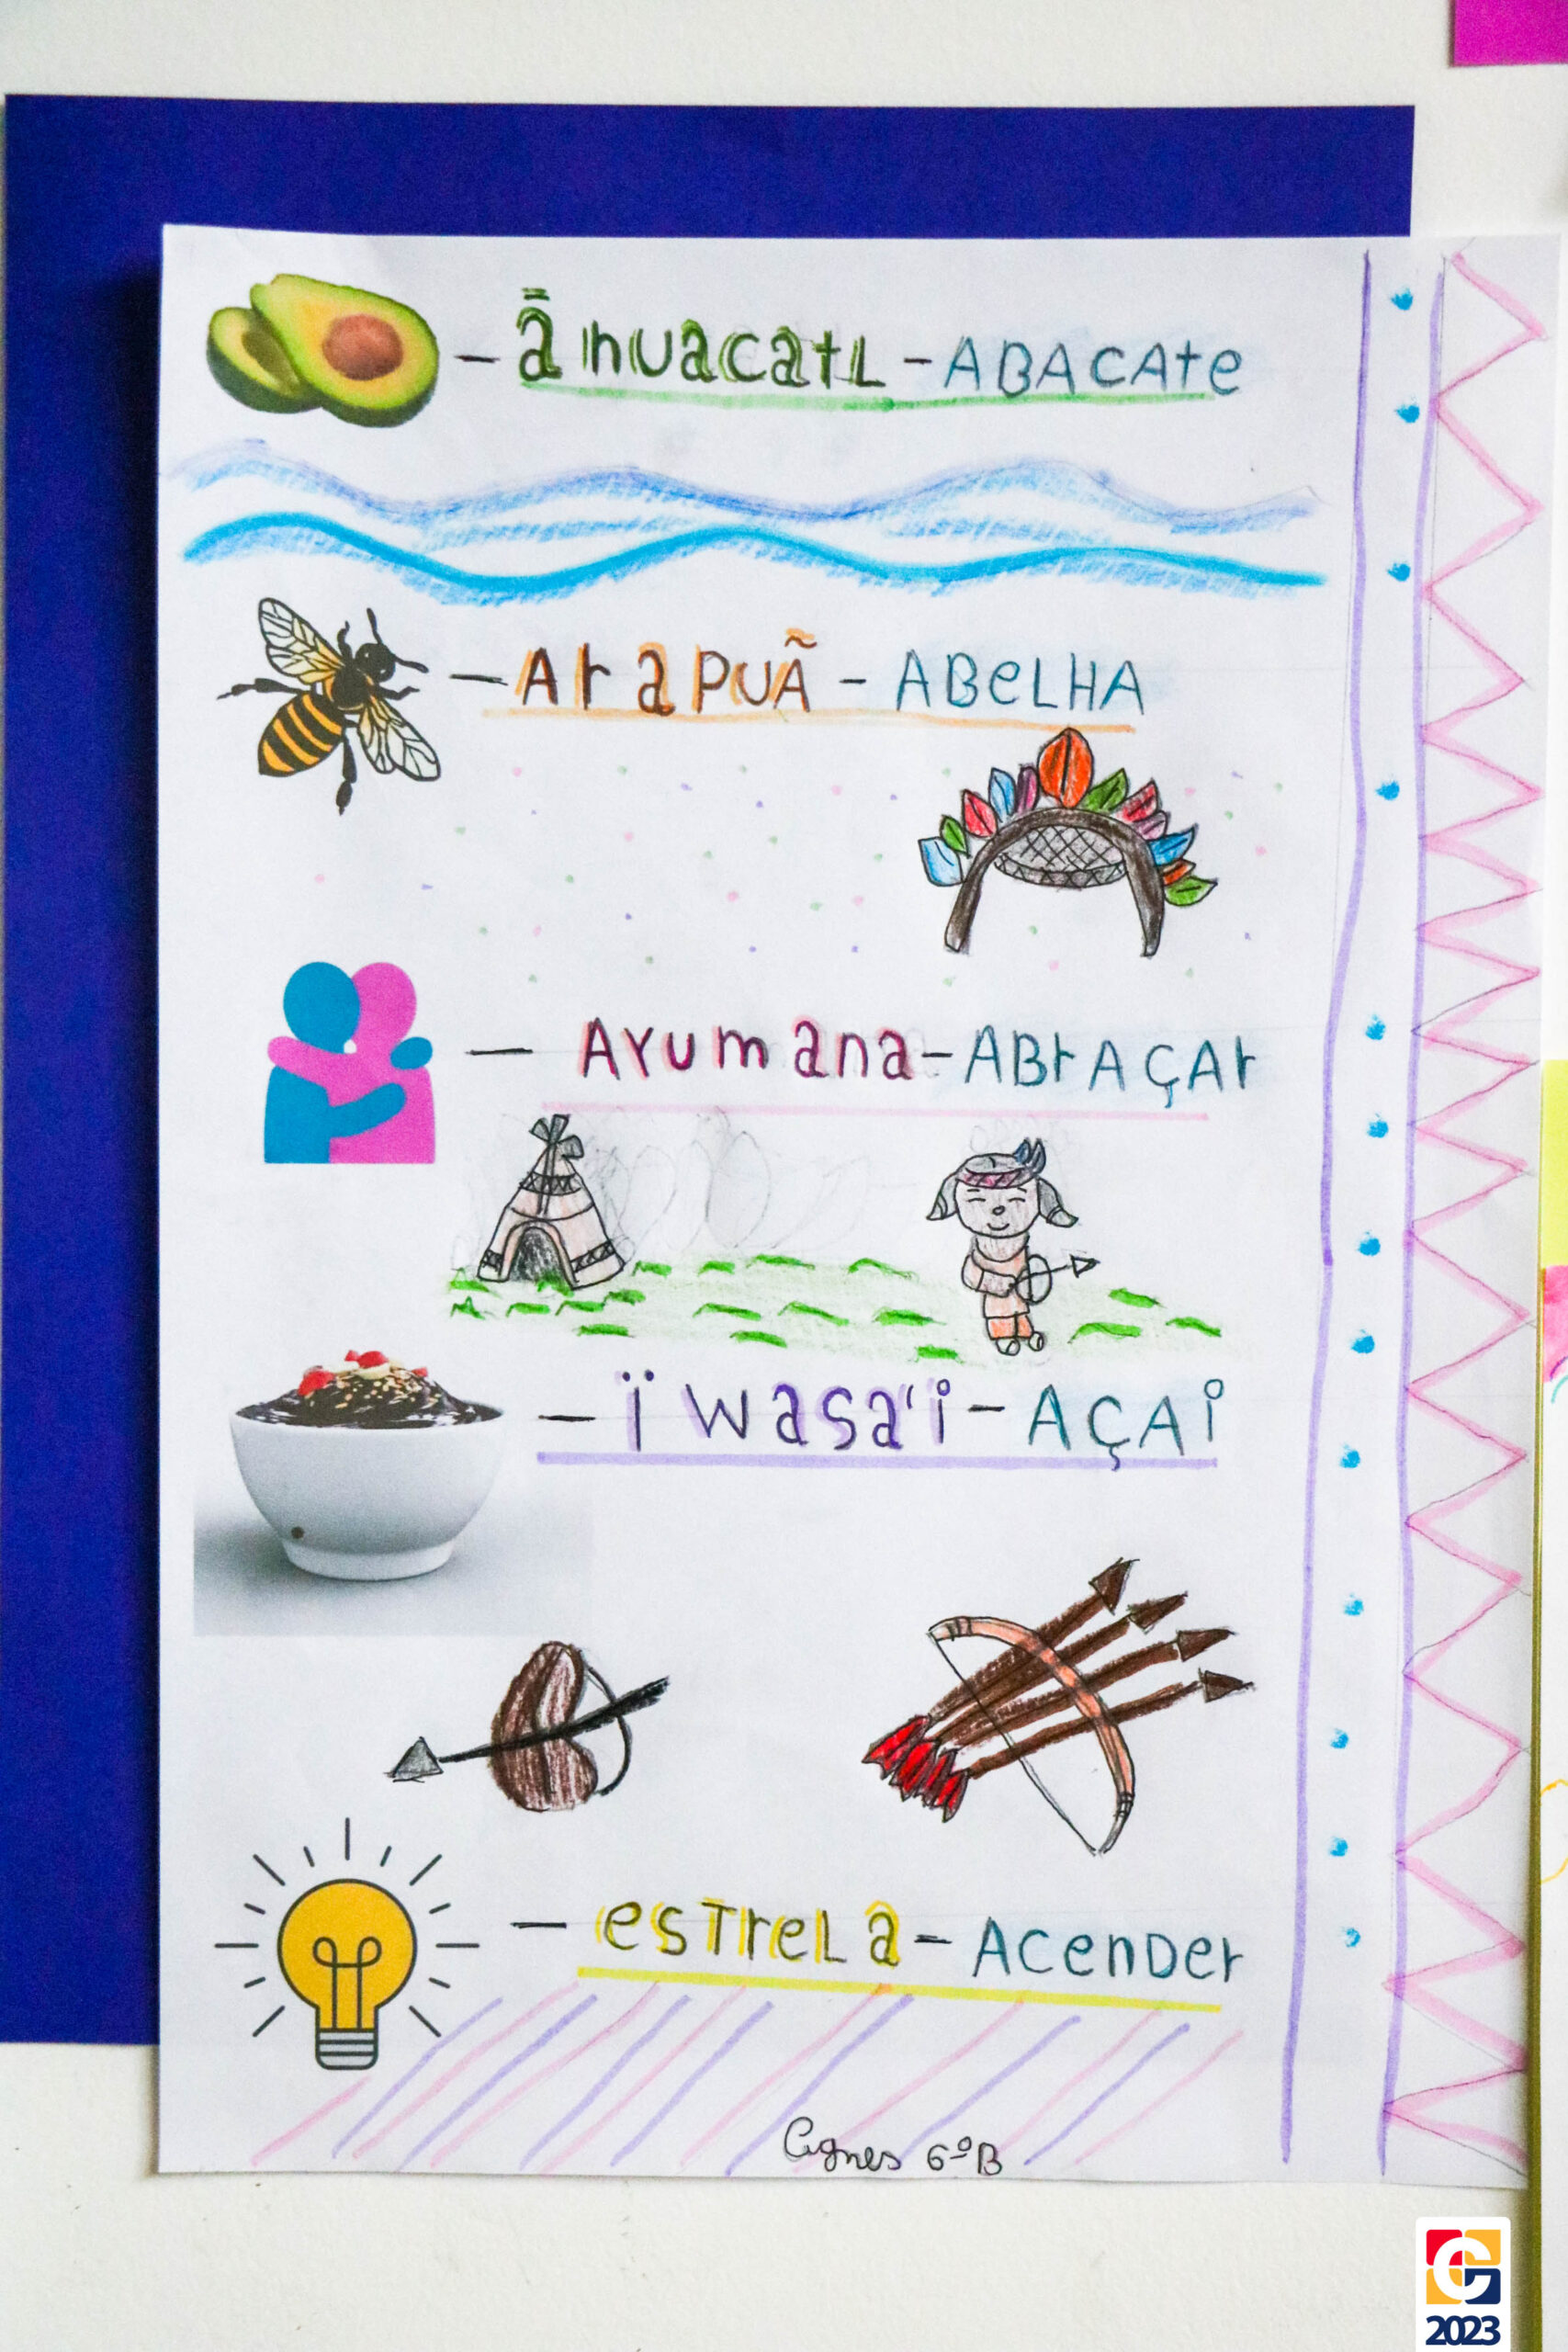 — āhuacatL - ABACAte
— ArapuÃ - ABeLHA
— Ayumana - ABrAÇAr
— ï wasa'i - AÇAí
— esTreLa - AcenDer
Agnes 6º B
G
2023